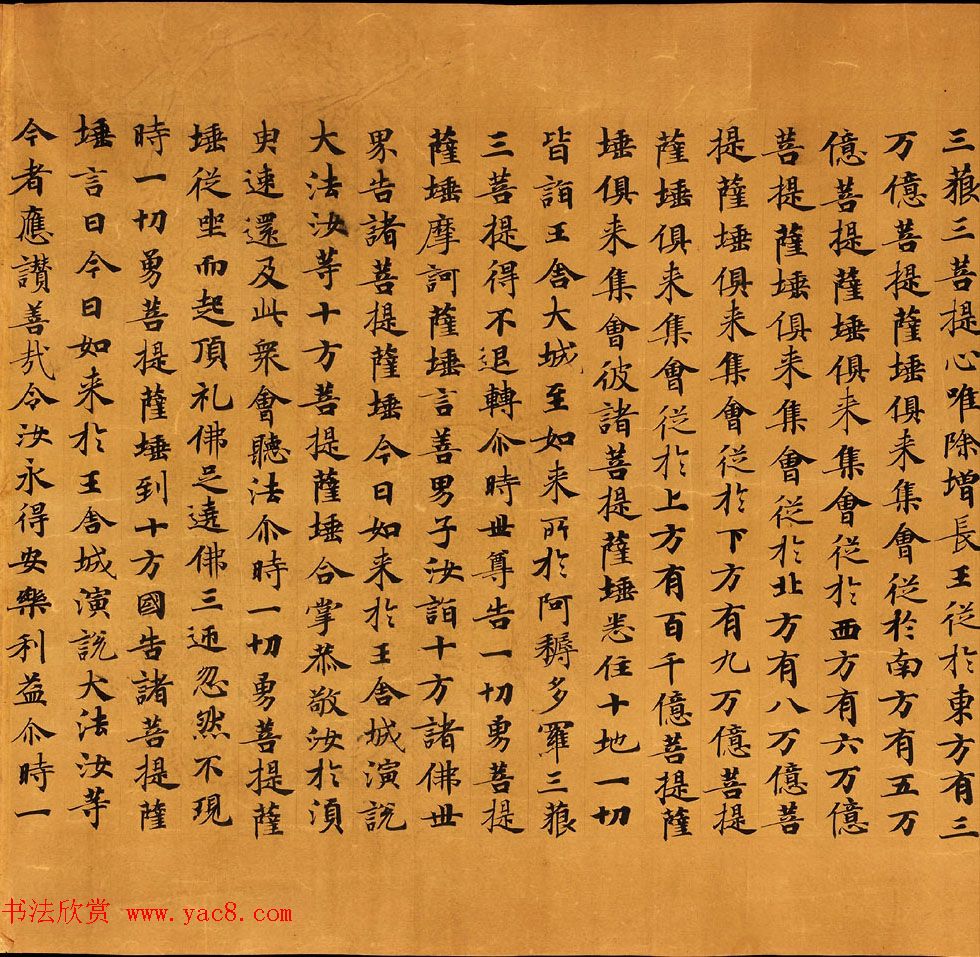 三藐三菩提心唯除增長王從於東方有三
万億菩提薩埵俱来集會從於南方有五万
億菩提薩埵俱来集會從於西方有六万億
菩提薩埵俱来集會從於北方有八万億菩
提薩埵俱来集會從於下方有九万億菩提
薩埵俱来集會從於上方有百千億菩提薩
埵俱来集會彼諸菩提薩埵悉住十地一切
皆詣王舍大城至如来所於阿耨多羅三藐
三菩提得不退轉尒時世尊告一切勇菩提
薩埵摩訶薩埵言善男子汝詣十方諸佛世
界告諸菩提薩埵今日如来於王舍城演說
大法汝等十方菩提薩埵合掌恭敬汝於須
臾速還及此衆會聽法尒時一切勇菩提薩
埵從坐而起頂礼佛足遶佛三迊忽然不現
時一切勇菩提薩埵到十方國告諸菩提薩
埵言曰今日如来於王舍城演說大法汝等
今者應讚善哉令汝永得安樂利益尒時一
书法欣赏 www.yac8.com